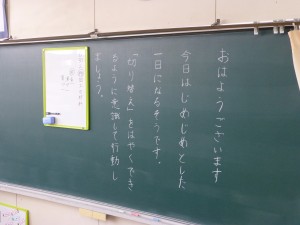 おはようございます
今日はじめじめとした
一日になるそうです。
「切り替え」をはやくでき
るように意識して行動し
ましょう。